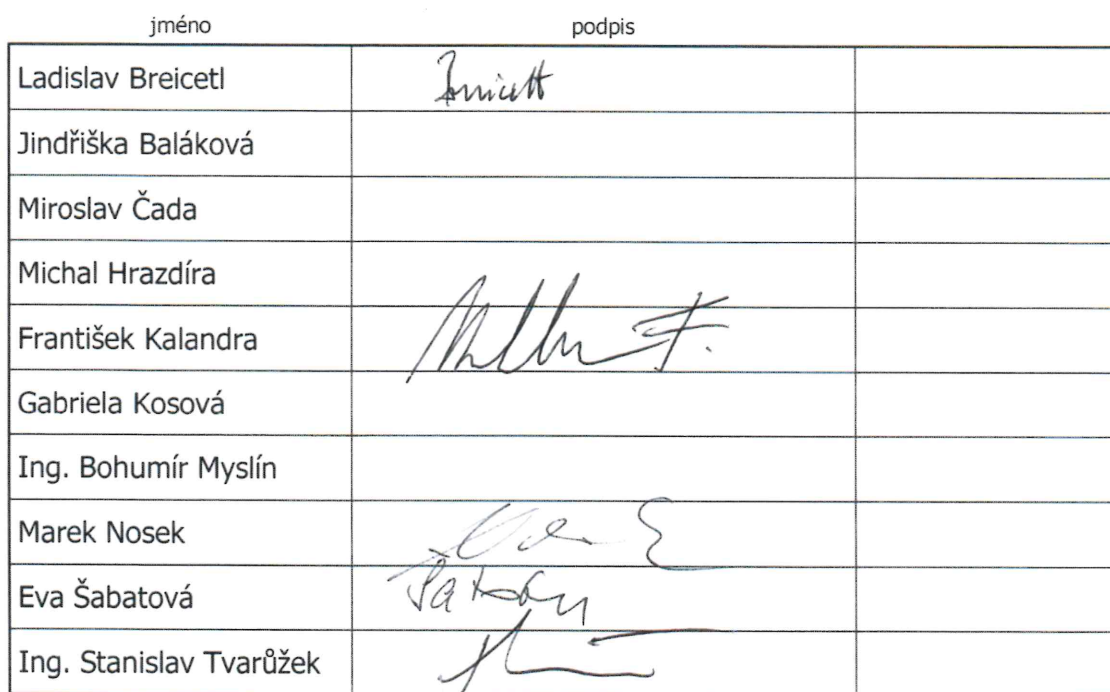 jméno podpis
Ladislav Breicetl
Jindřiška Baláková
Miroslav Čada
Michal Hrazdíra
František Kalandra
Gabriela Kosová
Ing. Bohumír Myslín
Marek Nosek
Eva Šabatová
Ing. Stanislav Tvarůžek